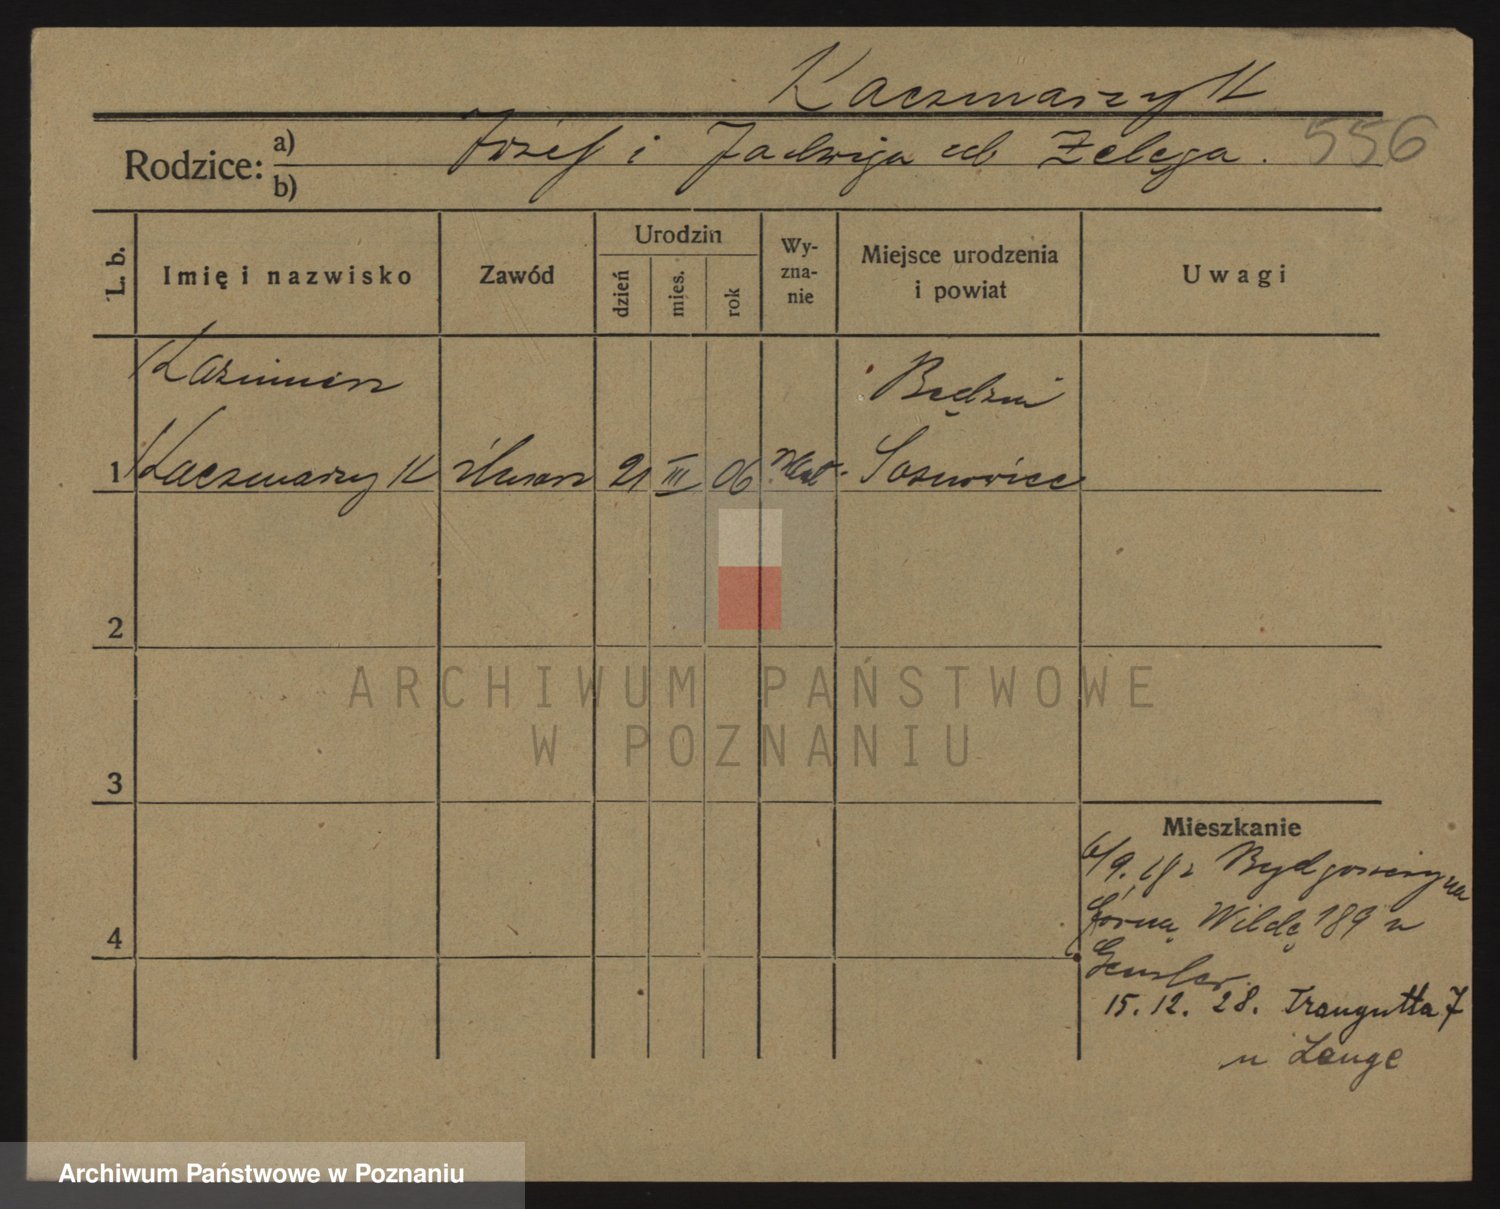 Kaczmarzyk
Rodzice: a) Józef i Jadwiga ab Zelęga. 556
b)
L. b. Imię i nazwisko Zawód Urodzin dzień mies. rok Wy-zna-nie Miejsce urodzenia i powiat Uwagi
Kazimierz Będzin
1 Kaczmarzyk ślusarz 21 III 06 rkat. Sosnowice
2
ARCHIWUM PAŃSTWOWE
W POZNANIU
3
Mieszkanie
6/9. 28 z Bydgoszczy na
4 Górną Wildę 189 u
Gensler
15. 12. 28. Traugutta 7
u Lange
Archiwum Państwowe w Poznaniu